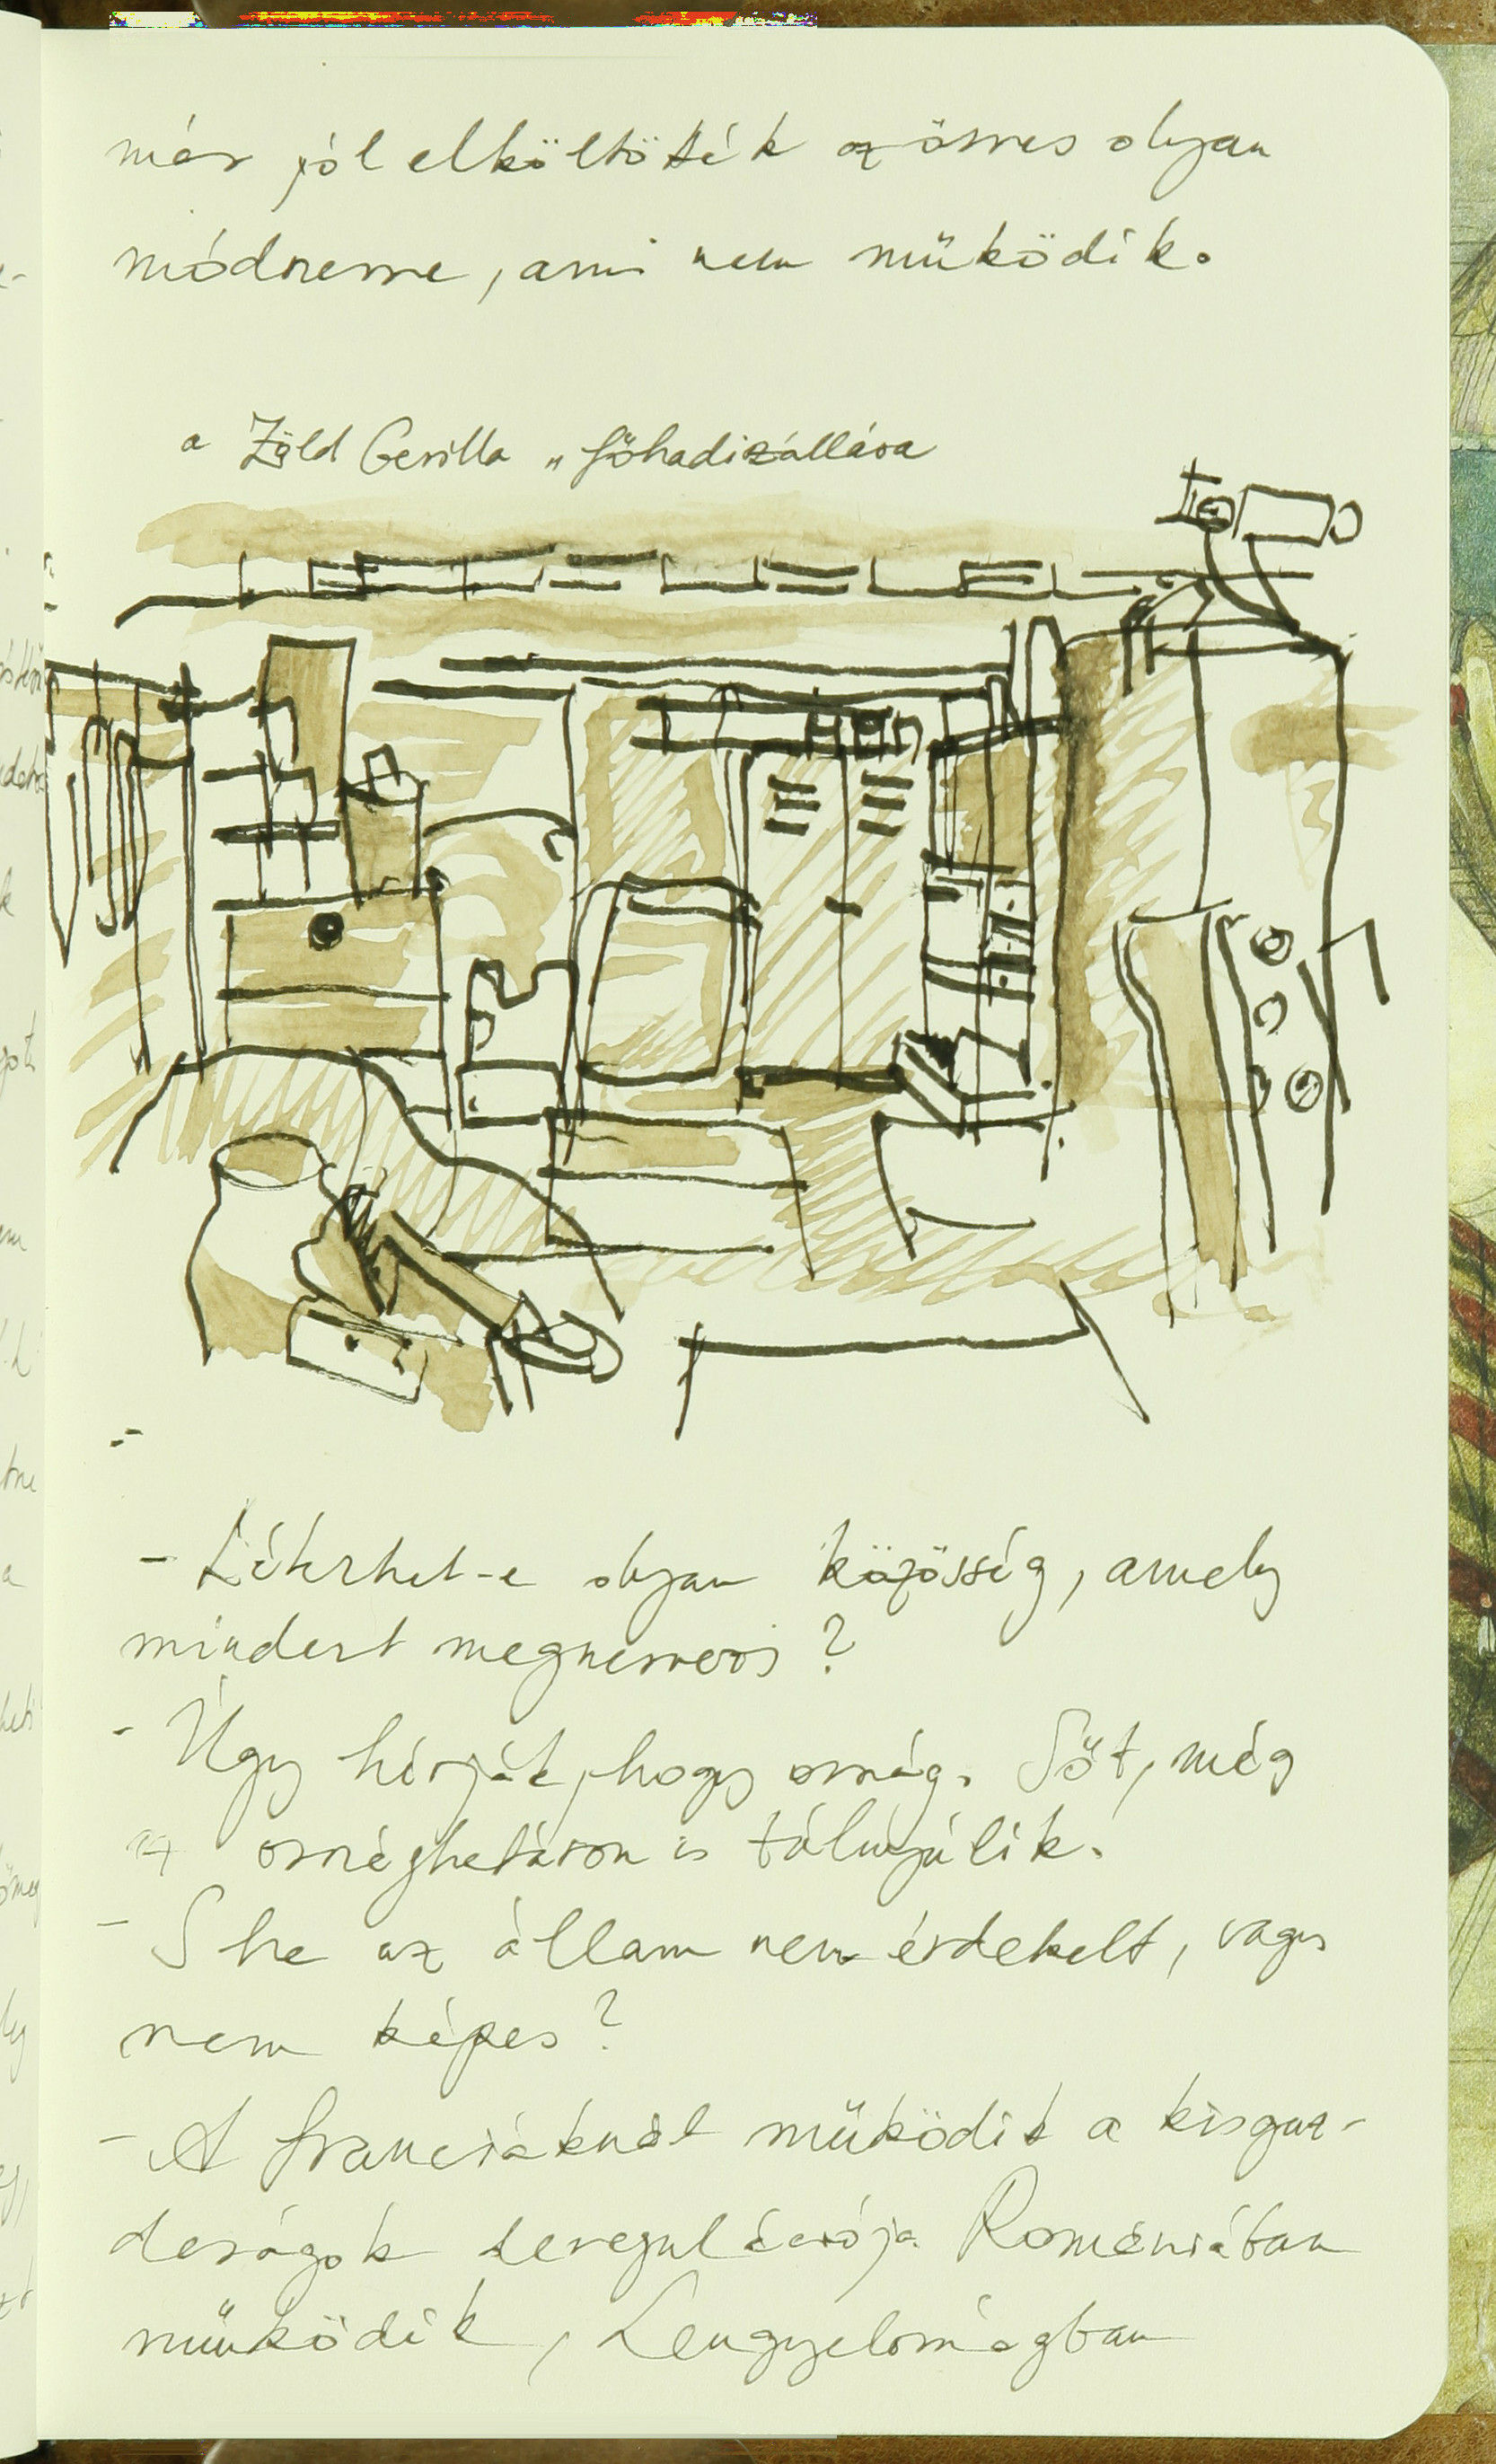 már jól elköltötték az összes olyan
módszerre, ami nem működik.
a Zöld Gerilla „főhadiszállása
- Létezhet-e olyan közösség, amely
mindezt megszervezi?
- Úgy hívják, hogy ország. Sőt, még
az országhatáron is túlnyúlik.
- S ha az állam nem érdekelt, vagy
nem képes?
- A franciáknál működik a kisgaz-
daságok deregulációja. Romániában
működik, Lengyelországban